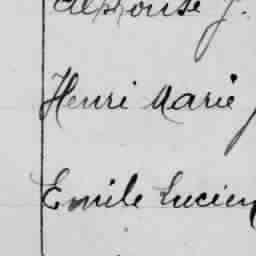 Alphonse J.
Henri Marie
Emile Lucien